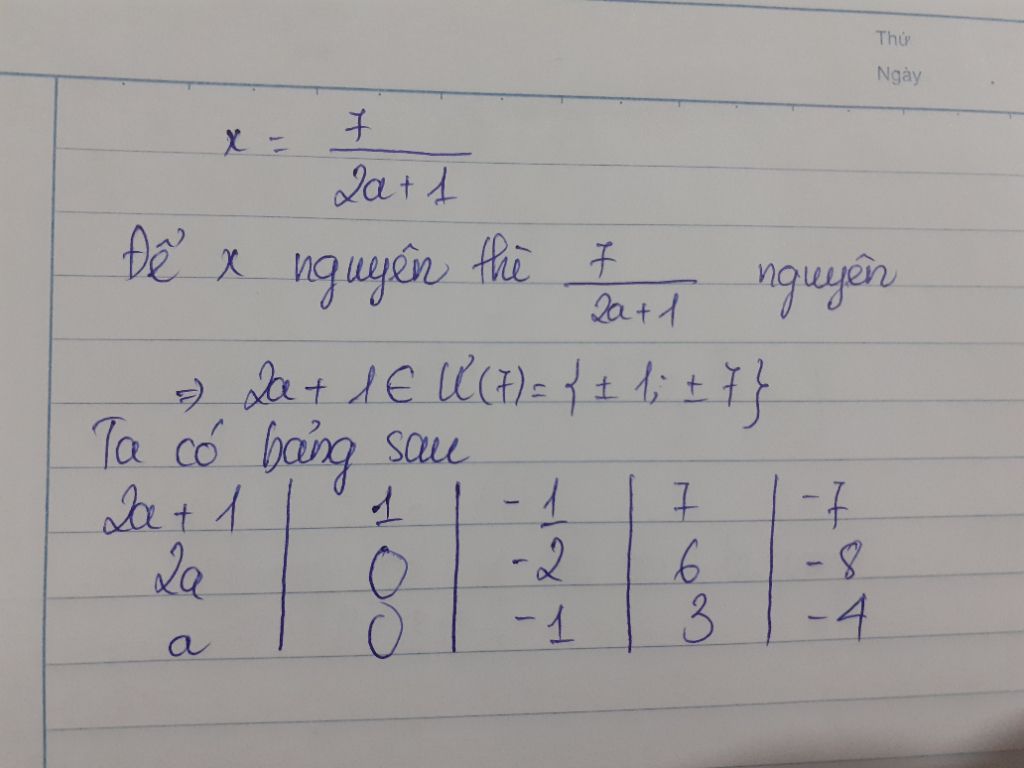 Thứ
Ngày
x = 7/(2a + 1)
Để x nguyên thì 7/(2a+1) nguyên
⇒ 2a + 1 ∈ Ư(7) = { ± 1; ± 7 }
Ta có bảng sau
2a + 1 | 1 | -1 | 7 | -7
2a | 0 | -2 | 6 | -8
a | 0 | -1 | 3 | -4